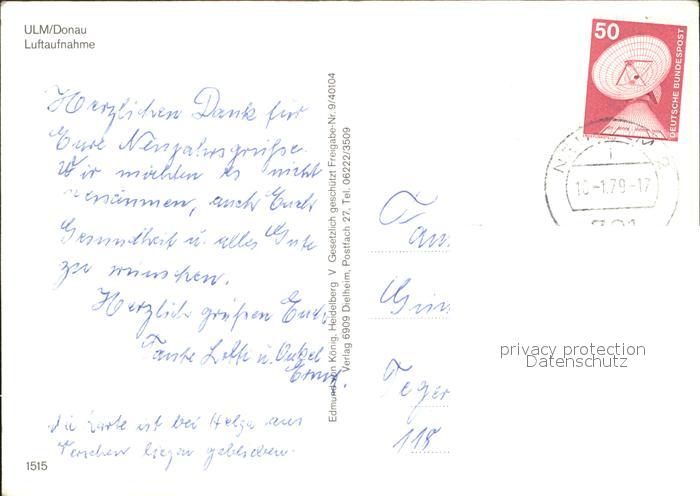 ULM/Donau
Luftaufnahme
Herzlichen Dank für
Eure Neujahrsgrüße.
Wir möchten es nicht
versäumen, auch Euch
Gesundheit u. alles Gute
zu wünschen.
Herzlich grüßen Euch
Tante Lotte u. Onkel
Ernst.
die Karte ist bei Helga aus
Versehen liegen geblieben.
1515
Edmund von König, Heidelberg V Gesetzlich geschützt Freigabe-Nr. 9/40104
Verlag 6909 Dielheim, Postfach 27, Tel. 06222/3509
50
DEUTSCHE BUNDESPOST
10-1.79-17
Fam.
Teger
118
privacy protection
Datenschutz